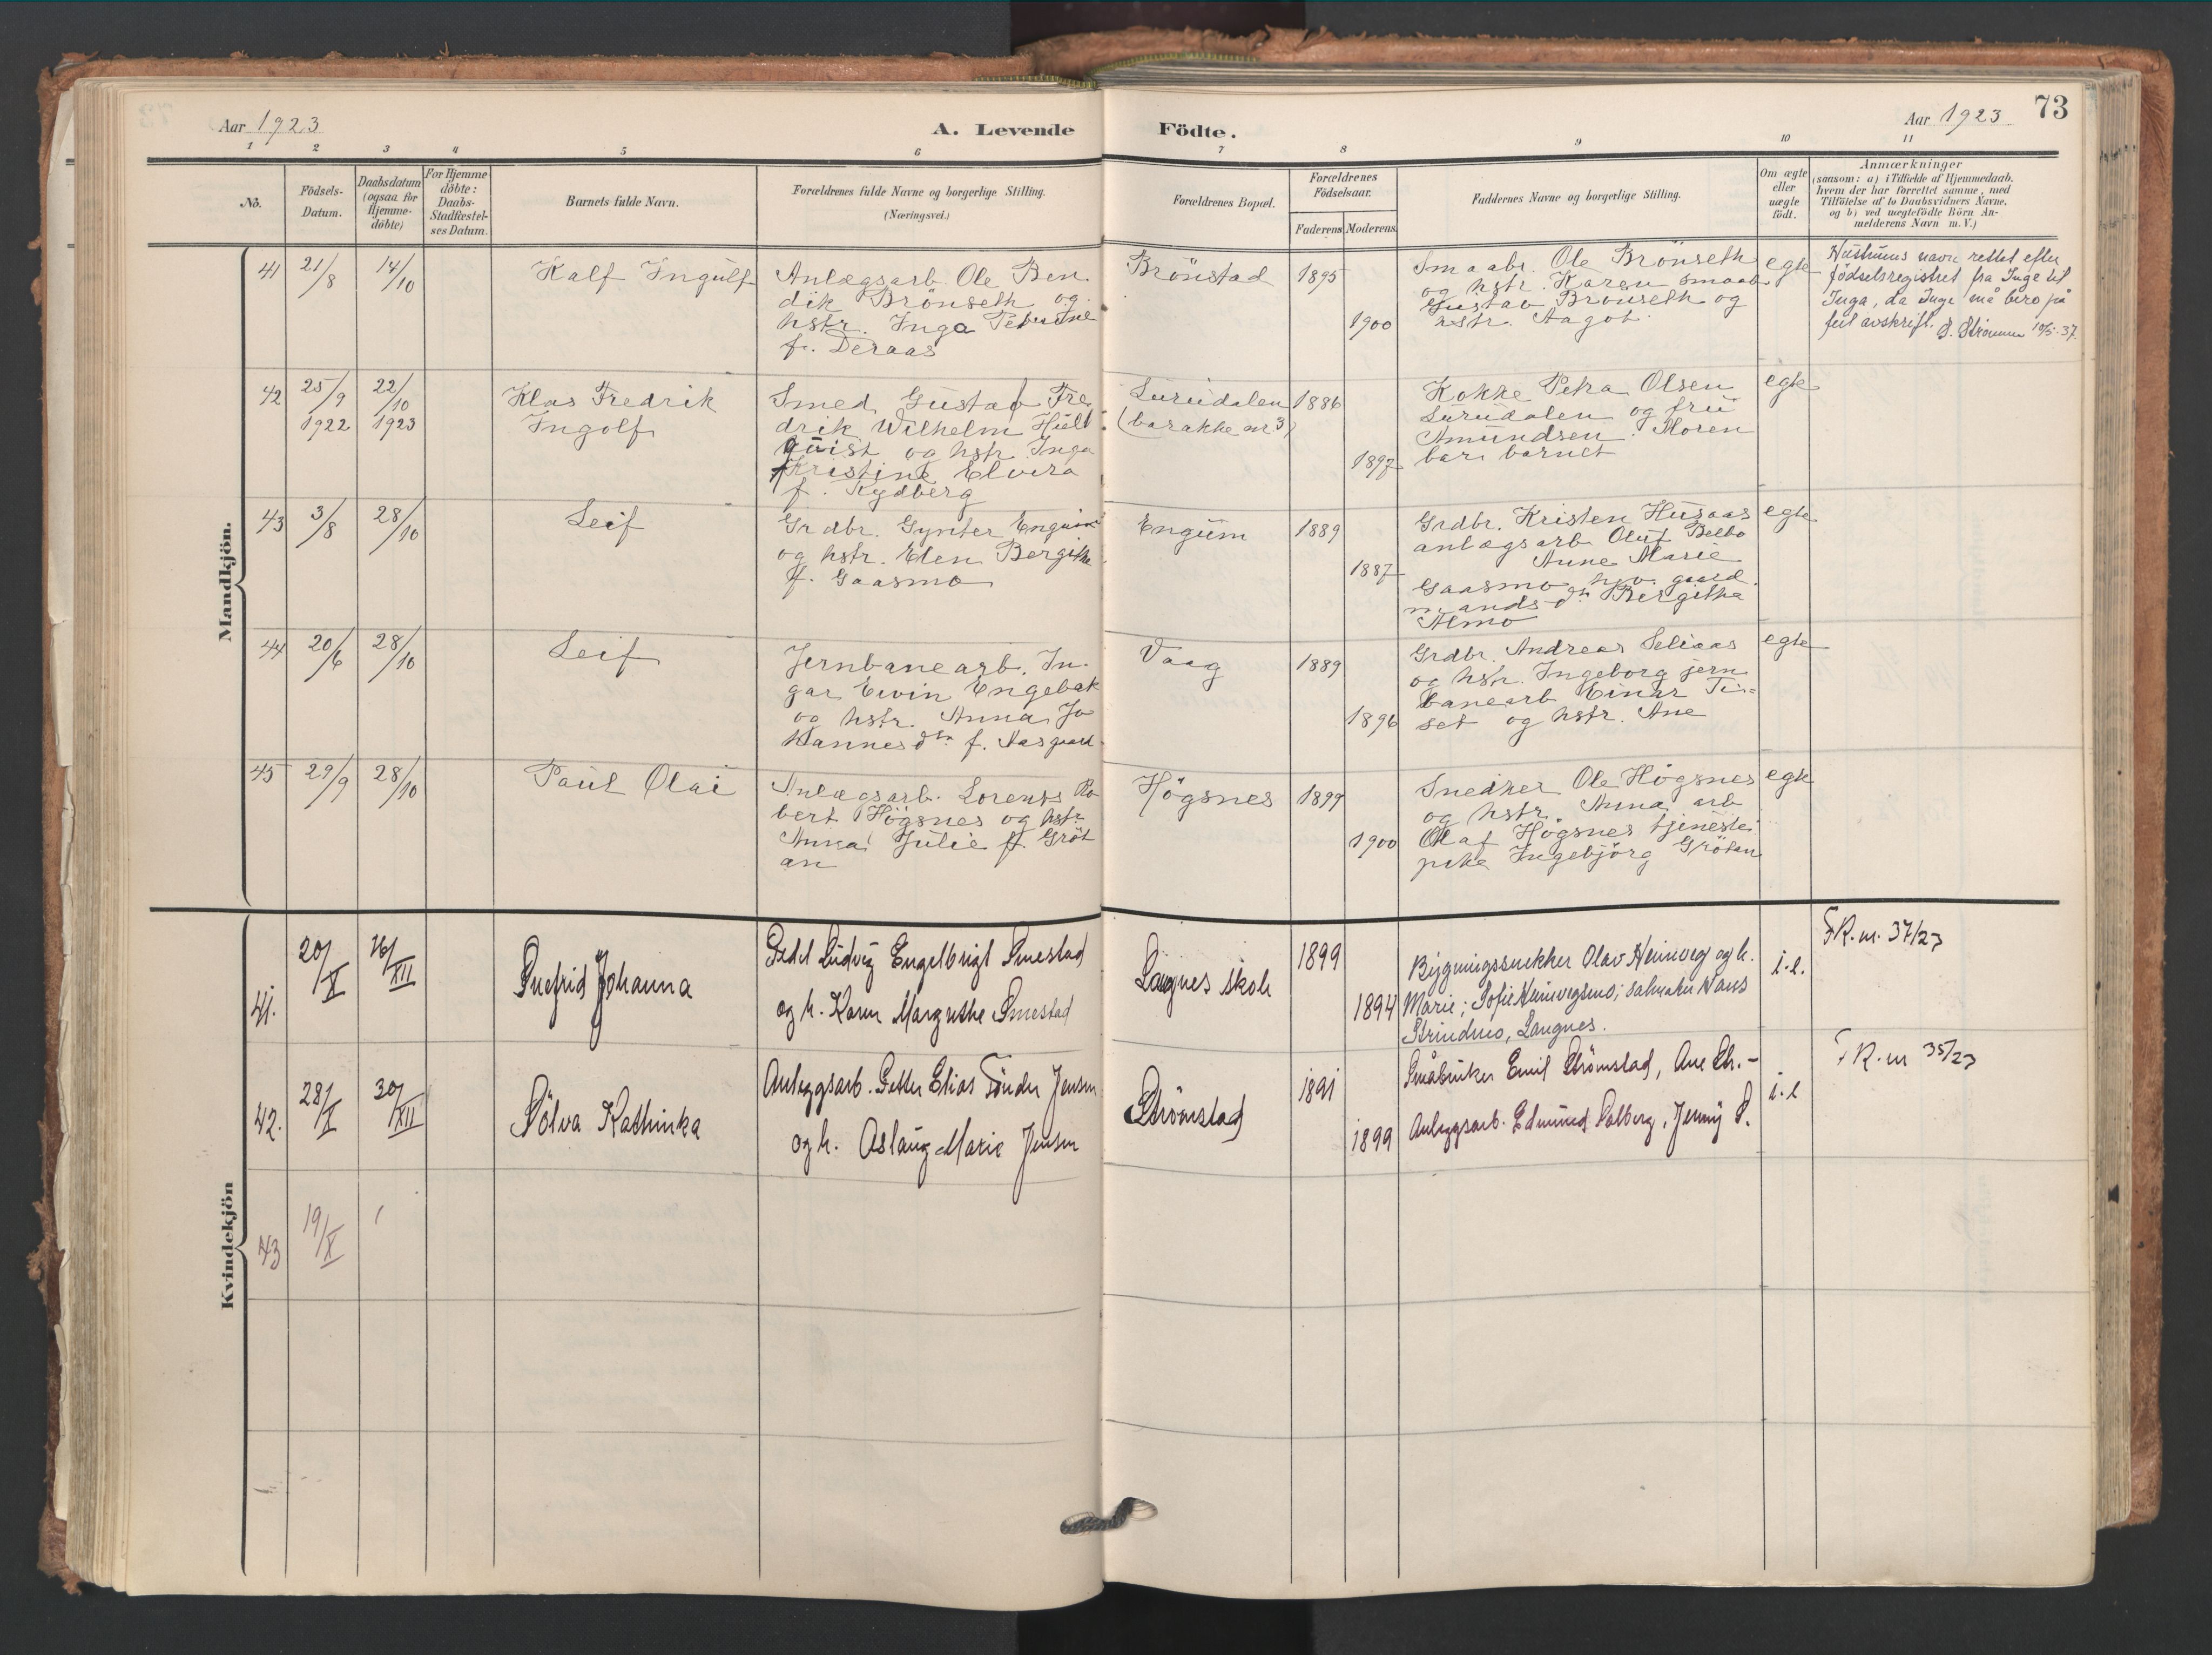 73
Aar 1923
A. Levende Födte.
Aar 1923
1 2 3 4 5 6 7 8 9 10 11
No.
Födsels-Datum.
Daabsdatum (ogsaa for Hjemme-döbte)
For Hjemme döbte: Daabs-Stadfæstel-ses Datum.
Barnets fulde Navn.
Forældrenes fulde Navne og borgerlige Stilling.
(Næringsvei.)
Forældrenes Bopæl.
Forældrenes Födselsaar.
Faderens Moderens
Faddernes Navne og borgerlige Stilling.
Om ægte eller uægte födt.
Anmærkninger
(saasom: a) i Tilfælde af Hjemmedaab.
hvem der har forrettet samme, med
Tilföielse af to Daabsvidners Navne.
og b) ved uægtefödte Börn An-
melderens Navn m. V.)
Mandkjön.
41 21/8 14/10
Kalf Ingulf
Anlægsarb. Ole Ben
dik Brönseth og
hstr. Inga Petrine
f. Deraas
Brönstad
1895
1900
Smaabr. Ole Brönseth
og hstr. Karen smaab
Gustav Brönseth og
hstr. Aagot
egte
Hustruens navn rettet efter
födselsregistret fra Inge til
Inga, da Inge må bero på
feil avskrift. S. Strömme 10/5-37.
42 25/9 22/10
1922 1923
Klas Fredrik
Ingolf
Smed Gustaf Fre
drik Wilhelm Hult
quist og hstr. Inga
Kristine Elvira
f. Rydberg
Lurudalen
(barakke nr 3)
1886
1897
Kokke Petra Olsen
Lurudalen og fru
Amundsen. Moren
bar barnet
egte
43 3/8 28/10
Leif
Grdbr. Gynter Engum
og hstr. Elen Bergithe
f. Gaasmo
Engum
1889
1887
Grdbr. Kristen Husaas
anlægsarb. Oluf Belbo
Anne Marie
Gaasmo hjv. gaard
mandsdtr Bergitha
Almo
egte
44 20/6 28/10
Leif
Jernbanearb. In
gar Ewin Engebak
og hstr. Anna Jo
hannesdtr. f. Aasgaard
Vaag
1889
1896
Grdbr. Andreas Seliaas
og hstr. Ingeborg jern
banearb Einar Ti=
set og hstr. Ane
egte
45 29/9 28/10
Paul Olai
Anlægsarb. Lorents Ro
bert Högsnes og hstr
Anna Julie f. Gröt
an
Högsnes
1899
1900
Snedker Ole Högsnes
og hstr. Anna arb
Olaf Högsnes tjeneste
pike Ingebjörg Grötan
egte
Kvindekjön
41. 20/X 26/XII
Snefrid Johanna
Fedel Ludvig Engelbrigt Smestad
og h. Karen Margrethe Smestad
Langnes skole
1899
1894
Bygningssnekker Olav Heimveg og h.
Marie; Sofie Heimvegsmo; salmaker Hans
Strindmo, Langnes.
i.e.
F.R. nr. 37/23
42. 28/X 30/XII
Sölva Kathinka
Anleggsarb. Petter Elias Tönder Jensen
og h. Aslaug Marie Jensen
Strömstad
1891
1899
Småbruker Emil Strömstad, Ane Str. -
Anleggsarb. Edmund Solberg, Jenny S.
i.e
F.R. nr 35/23
43 19/X